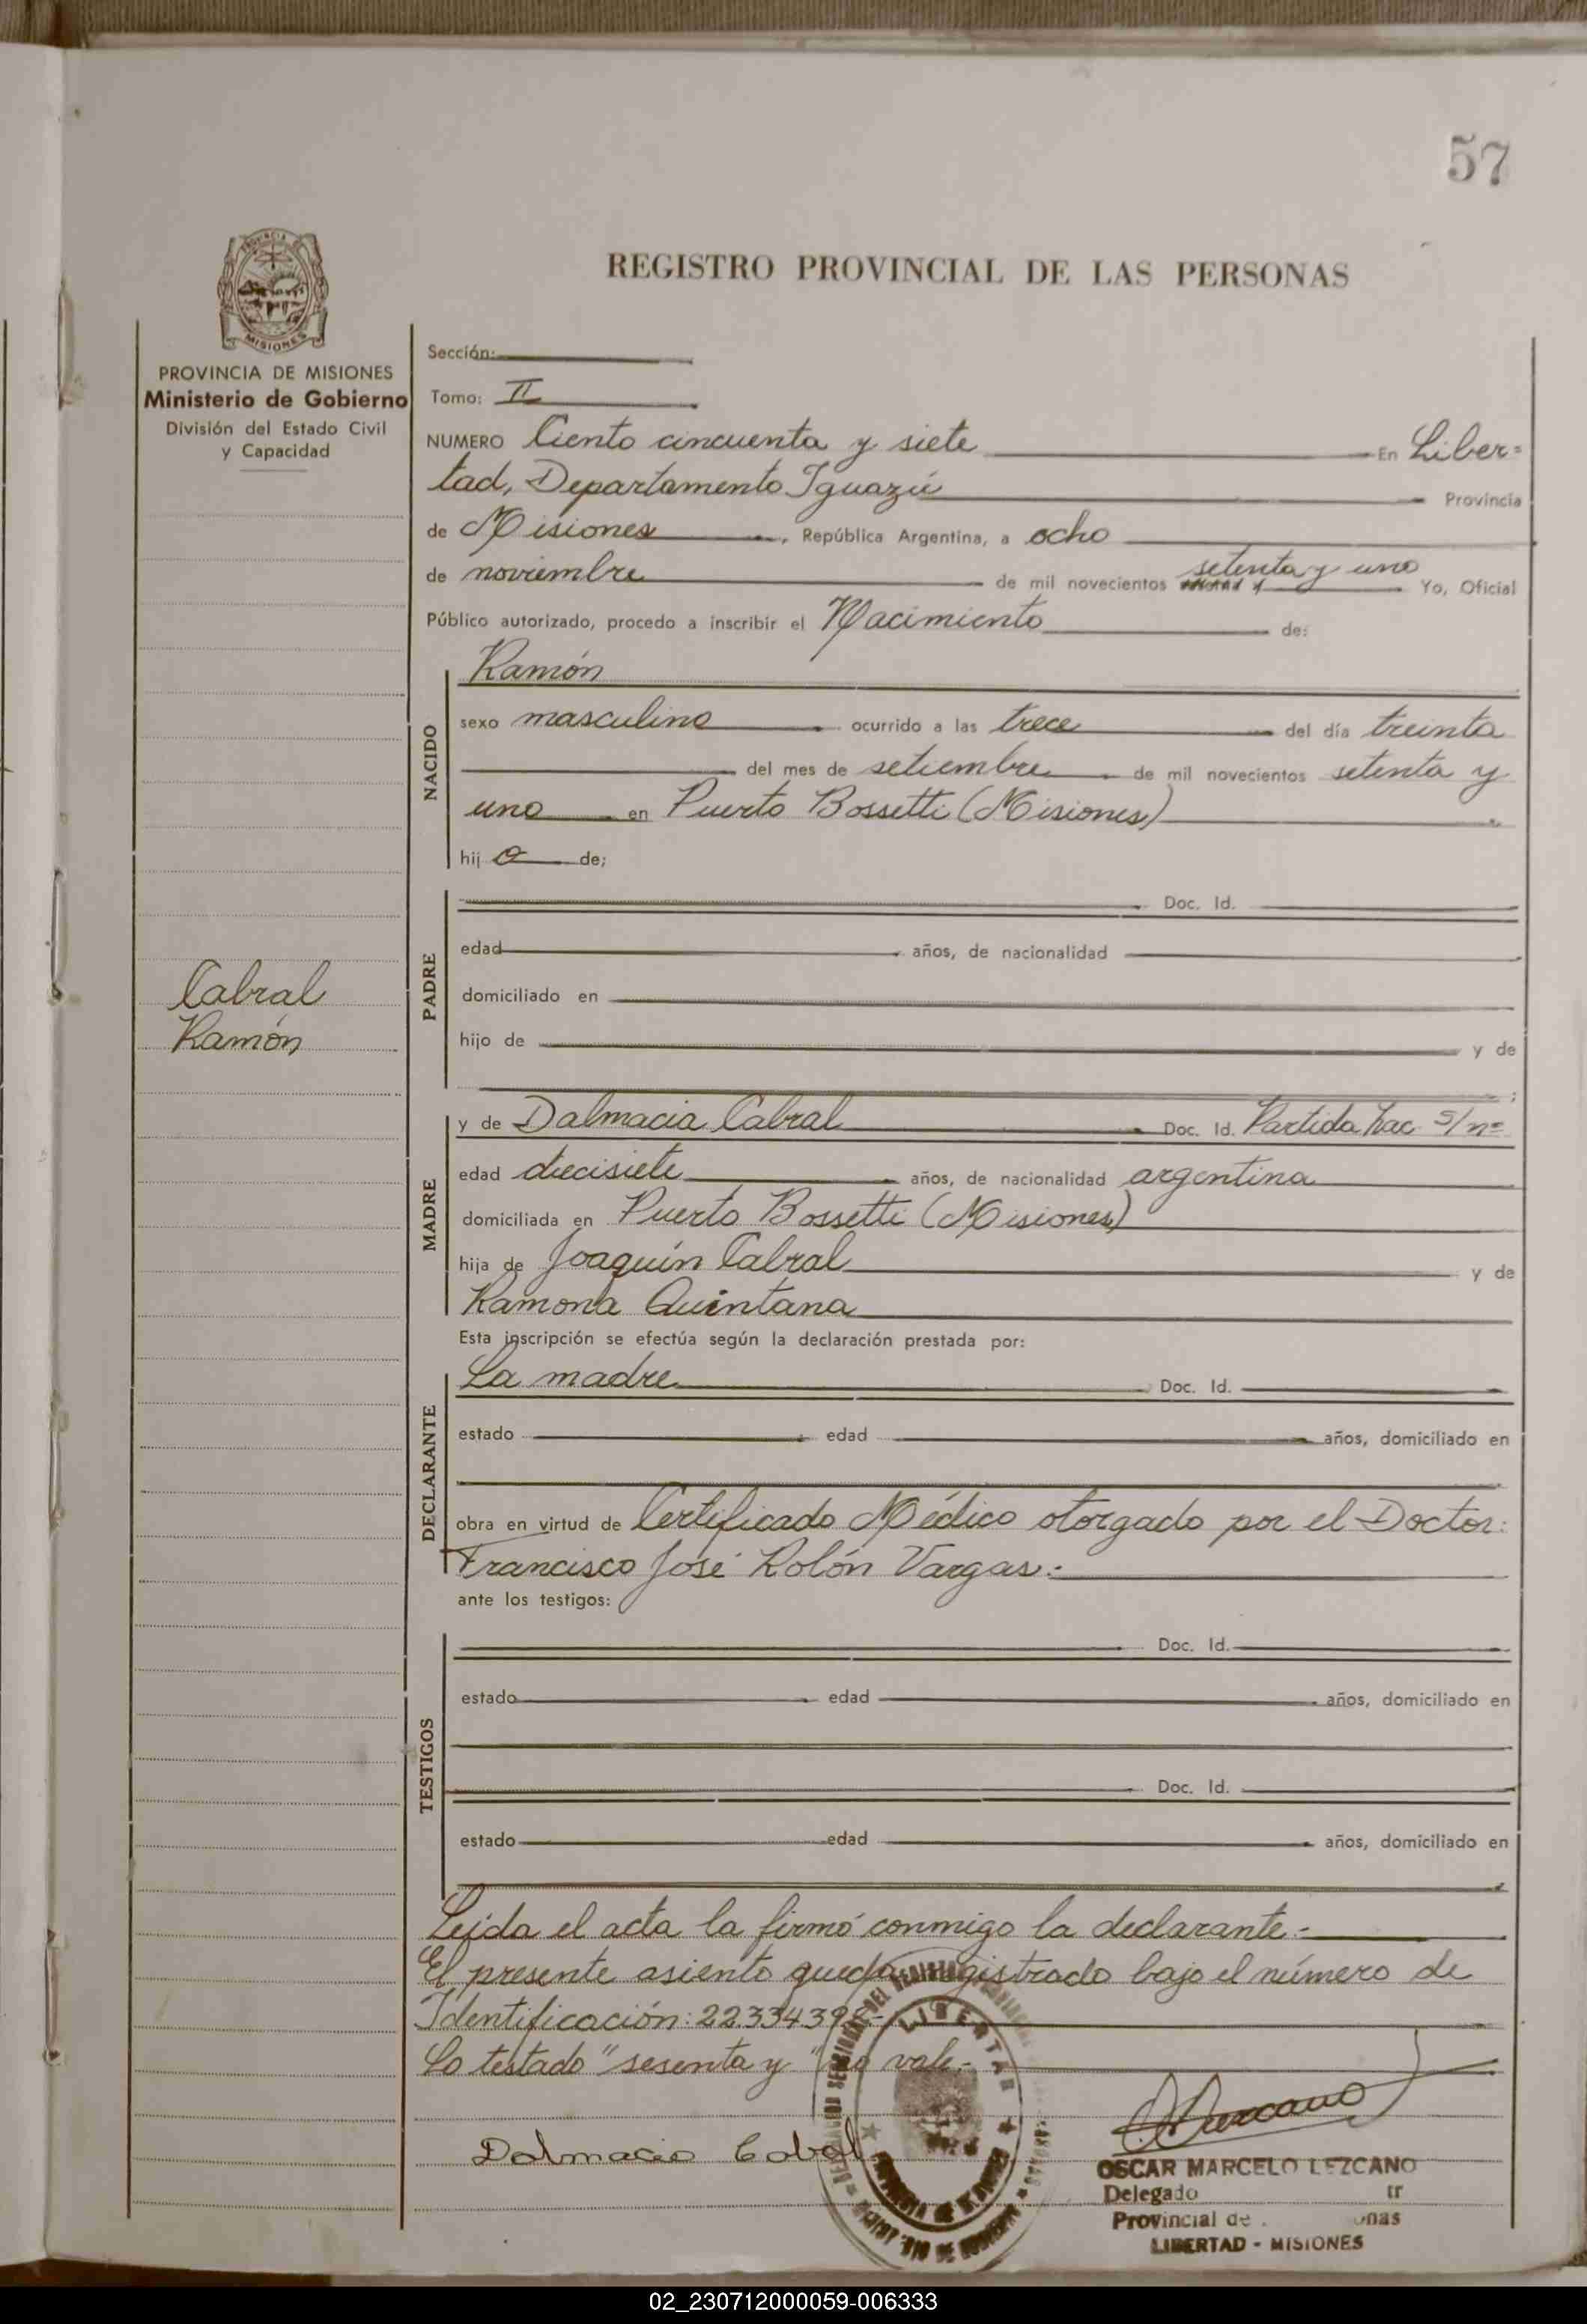 57
REGISTRO PROVINCIAL DE LAS PERSONAS
PROVINCIA DE MISIONES
Ministerio de Gobierno
División del Estado Civil
y Capacidad
Cabral
Ramón
Sección:
Tomo: II
NUMERO Ciento cincuenta y siete En Liber=
tad, Departamento Iguazú Provincia
de Misiones, República Argentina, a ocho
de noviembre de mil novecientos setenta y uno Yo, Oficial
Público autorizado, procedo a inscribir el Nacimiento de:
NACIDO
Ramón
sexo masculino ocurrido a las trece del día treinta
del mes de setiembre de mil novecientos setenta y
uno en Puerto Bossetti (Misiones)
hij o de;
PADRE
Doc. Id.
edad años, de nacionalidad
domiciliado en
hijo de y de
;
MADRE
y de Dalmacia Cabral Doc. Id. Partida Nac. s/nº
edad diecisiete años, de nacionalidad argentina
domiciliada en Puerto Bossetti (Misiones)
hija de Joaquín Cabral y de
Ramona Quintana
Esta inscripción se efectúa según la declaración prestada por:
DECLARANTE
La madre Doc. Id.
estado edad años, domiciliado en
obra en virtud de Certificado Médico otorgado por el Doctor:
Francisco José Rolón Vargas.-
ante los testigos:
TESTIGOS
Doc. Id.
estado edad años, domiciliado en
Doc. Id.
estado edad años, domiciliado en
Leída el acta la firmó conmigo la declarante.-
El presente asiento queda registrado bajo el número de
Identificación: 22.334.398.-
Lo testado "sesenta y" no vale.-
Dalmacia Cabral
LIBERTAD
OSCAR MARCELO LEZCANO
Delegado
Provincial de
LIBERTAD - MISIONES
02_230712000059-006333